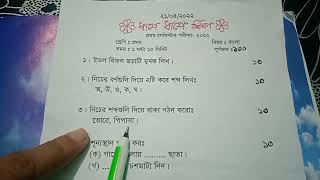 ২১/০৫/২০২২
প্রথম সেমিস্টার পরীক্ষা- ২০২২
শ্রেণি : প্রথম
বিষয় : বাংলা
সময় : ১ ঘন্টা ১৫ মিনিট
পূর্ণমান : ১০০
১। ইতল বিতল ছড়াটি মুখস্ত লিখ। ১০
২। নিচের বর্ণগুলি দিয়ে ২টি করে শব্দ লিখঃ ১০
অ, উ, ও, ক, ঘ।
৩। নিচের শব্দগুলি দিয়ে বাক্য গঠন করোঃ ১০
ভোরে, পিপাসা।
শূন্যস্থান করোঃ ১০
(ক) লায় ......... ছাতা।
(খ) চশমাটা দিন।